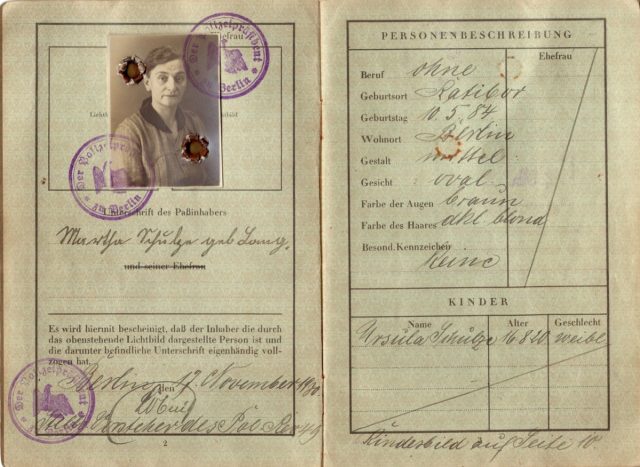 Ehefrau
Der Polizeipräsident
in Berlin
Der Polizeipräsident
in Berlin
Unterschrift des Paßinhabers
Martha Schulze geb.
und seiner Ehefrau
Es wird hiermit bescheinigt, daß der Inhaber die durch
das obenstehende Lichtbild dargestellte Person ist und
die darunter befindliche Unterschrift eigenhändig voll-
zogen hat.
Berlin, den 17. November 1930.
Der Polizeipräsident
in Berlin
2
PERSONENBESCHREIBUNG
Ehefrau
Beruf ohne
Geburtsort Ratibor
Geburtstag 10.5.84
Wohnort Berlin
Gestalt mittel
Gesicht oval
Farbe der Augen braun
Farbe des Haares dkl. blond
Besond. Kennzeichen
Keine
KINDER
Name Alter Geschlecht
Ursula Schulze 16 8 20 weibl
Kinderbild auf Seite 10.